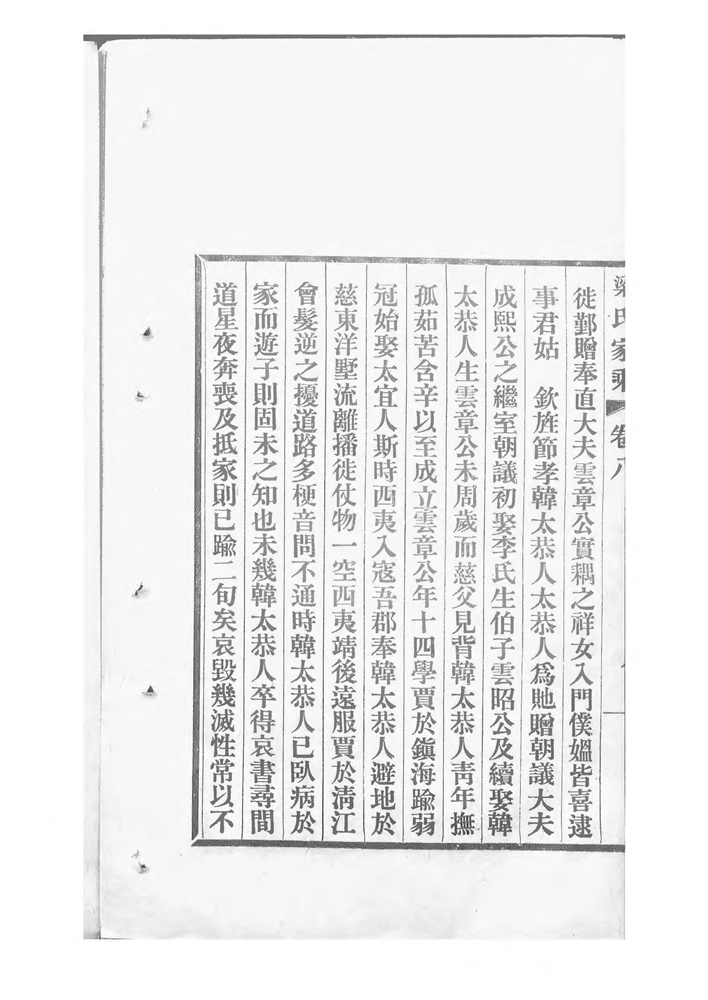 梁氏家乘 卷八
徙鄞贈奉直大夫雲章公實耦之祥女入門僕嫗皆喜逮
事君姑 欽旌節孝韓太恭人太恭人爲貤贈朝議大夫
成熙公之繼室朝議初娶李氏生伯子雲昭公及續娶韓
太恭人生雲章公未周歲而慈父見背韓太恭人靑年撫
孤茹苦含辛以至成立雲章公年十四學賈於鎭海踰弱
冠始娶太宜人斯時西夷入寇吾郡奉韓太恭人避地於
慈東洋墅流離播徙仗物一空西夷靖後遠服賈於淸江
會髮逆之擾道路多梗音問不通時韓太恭人已臥病於
家而遊子則固未之知也未幾韓太恭人卒得哀書尋間
道星夜奔喪及抵家則已踰二旬矣哀毀幾滅性常以不